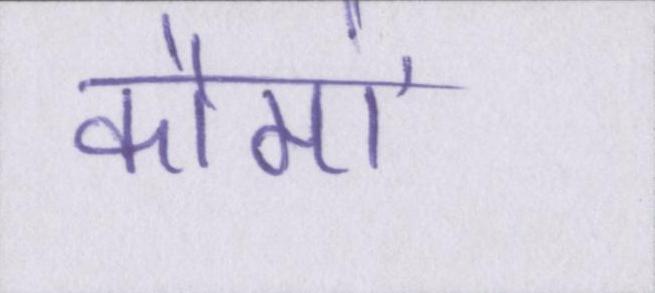 कोमां